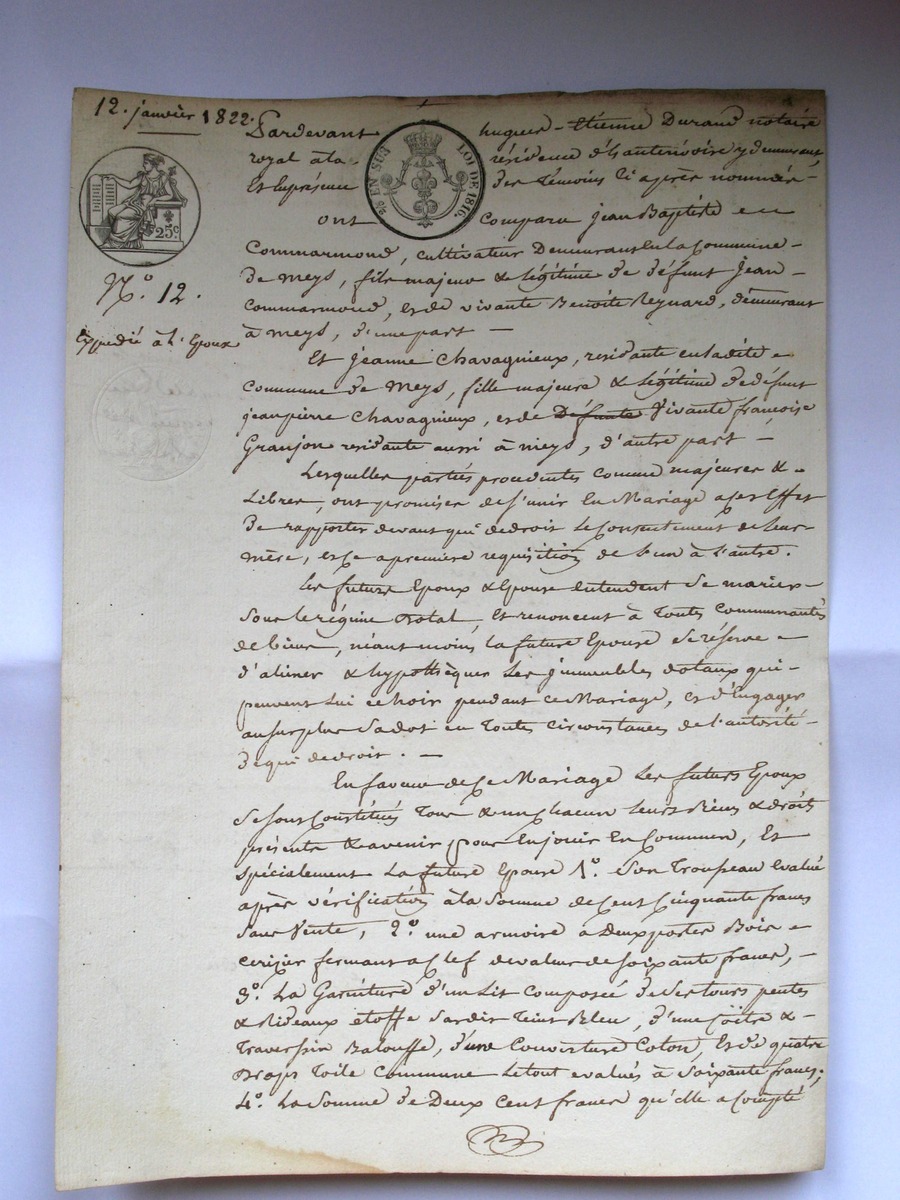 12. janvier 1822.
Pardevant hugues-Etienne Durand notaire
EN SUS LOI DE 1816.
royal à la résidence d'hauterivoire y demeurant,
Et En présence des témoins ci après nommés-
ont comparu jean Baptiste
25c
Commarmond, cultivateur Demeurant En la Commune-
N.° 12.
de Meys, fils majeur & légitime de défunt Jean-
Commarmond, et de vivante Benoite Reynard, demeurant
Expedié à l'Epoux
à Meys, d'une part —
Et Jeanne Chavagnieux, residante en ladite
Commune de Meys, fille majeure & légitime de défunt
jean pierre Chavagnieux, et de Défunte Vivante françoise
Granjon residante aussi à meys, d'autre part —
Lesquelles parties procedantes comme majeures &
Libres, ont promises de s'unir En Mariage a cet Effet
de rapporter devant qui de droit le Consentement de leur-
mère, et ce a première requisition de l'un à l'autre.
Les futurs Epoux & Epouse entendent se marier-
Sous le régime dotal, Et renoncent à Toutes Communautés
de biens, néant moins la future Epouse se réserve
d'aliener & hypothèquer les immeubles dotaux qui-
peuvent Lui échoir pendant ce Mariage, et d'Engager
au surplus sa dot en Toutes circonstances de l'autorité-
de qui de droit. —
En faveur de Ce Mariage Les futurs Epoux
se sont Constitués Tous & un chacun leurs Biens & droits
présents & avenir pour En jouir En Commun, Et
spécialement La future Epouse 1.° Son Trousseau évalué
après vérification à la Somme de Cent Cinquante francs
Sans Vente, 2.° une armoire à Deux portes Bois
cerisier fermant a Clef de valeur de soixante francs, -
3.° La Garniture d'un Lit composée de ses tours pentes
& Rideaux étoffe Sardis Teint Bleu, d'une Coëtre &
Traversin Balouffe, d'une Couverture Coton, Et de quatre
Draps Toile Commune le tout évalués à Soixante francs,
4.° La Somme de Deux cent francs qu'elle a Compté